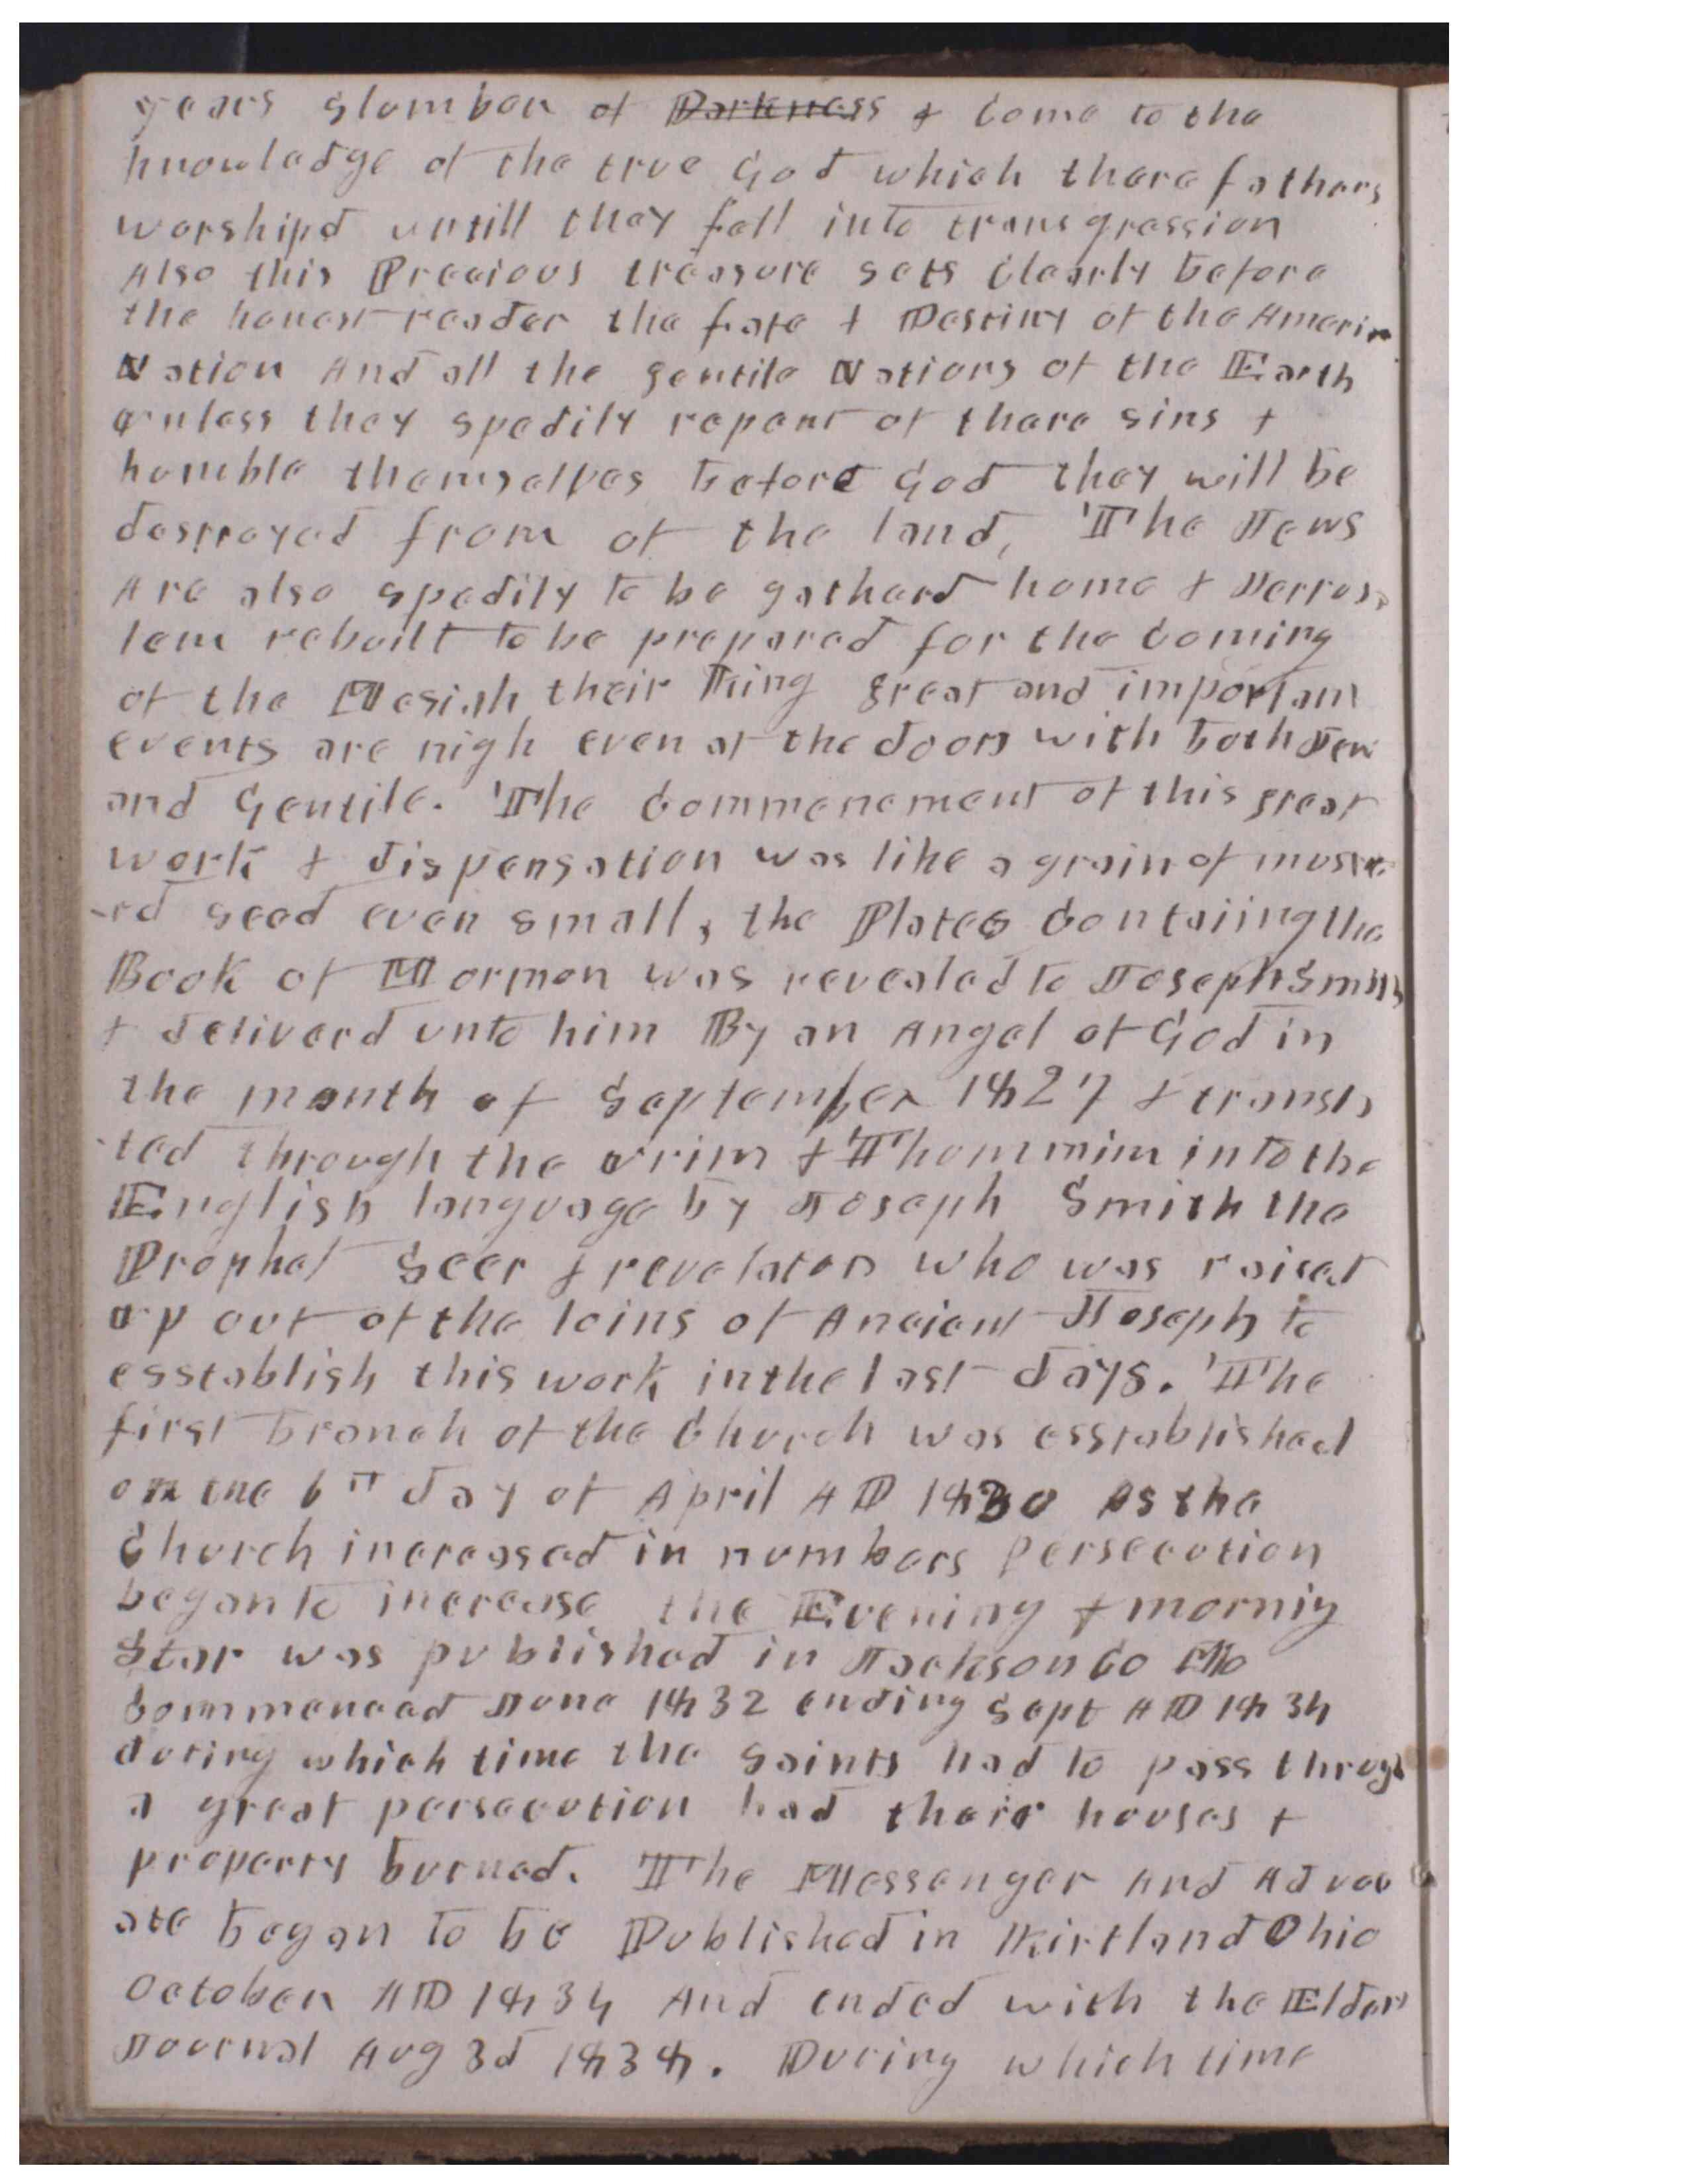 years slumber of Darkness & Come to the
knowledge of the true God which there fathers
worshipd untill they fell into transgression
Also this Precious treasure sets Clearly before
the honest reader the fate & Destiny of the Americ
Nation And all the gentile Nations of the Earth
unless they spedily repent of there sins &
humble themselves before God they will be
destroyed from of the land, The Jews
Are also spedily to be gatherd home & Jerrusa
lem rebuilt to be prepared for the Coming
of the Mesiah their King great and important
events are nigh even at the doors with both Jew
and Gentile. The Commencment of this great
work & dispensation was like a grain of musta
-rd seed even small, the Plates Contaiing the
Book of Mormon was revealed to Joseph Smith
& deliverd unto him By an Angel of God in
the month of September 1827 & transla
-ted through the Urim & Thummim into the
English language by Joseph Smith the
Prophet Seer & revelator who was raised
up out of the loins of Ancient Joseph to
esstablish this work in the last days. The
first branch of the Church was esstablished
on the 6th day of April AD 1830 As the
Church increased in numbers Persecution
began to increase the Evening & mornig
Star was published in Jackson Co Mo
Commenced June 1832 ending Sept AD 1834
during which time the Saints had to pass through
a great persecution had their houses &
property burned. The Messenger And Advoc
ate began to be Published in Kirtland Ohio
October AD 1834 And ended with the Elders
Journal Aug 3d 1838. During which time